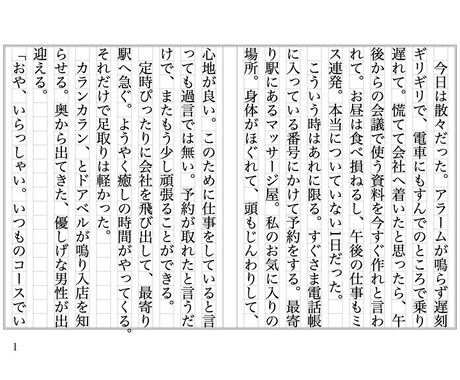 今日は散々だった。アラームが鳴らず遅刻
ギリギリで、電車にもすんでのところで乗り
遅れて。慌てて会社へ着いたと思ったら、午
後からの会議で使う資料を今すぐ作れと言わ
れて。お昼は食べ損ねるし、午後の仕事もミ
ス連発。本当についていない一日だった。
こういう時はあれに限る。すぐさま電話帳
に入っている番号にかけて予約をする。最寄
り駅にあるマッサージ屋。私のお気に入りの
場所。身体がほぐれて、頭もじんわりして、
心地が良い。このために仕事をしていると言
っても過言では無い。予約が取れたと言うだ
けで、またもう少し頑張ることができる。
定時ぴったりに会社を飛び出して、最寄り
駅へ急ぐ。ようやく癒しの時間がやってくる。
それだけで足取りは軽かった。
カランカラン、とドアベルが鳴り入店を知
らせる。奥から出てきた、優しげな男性が出
迎える。
「おや、いらっしゃい。いつものコースでい
1